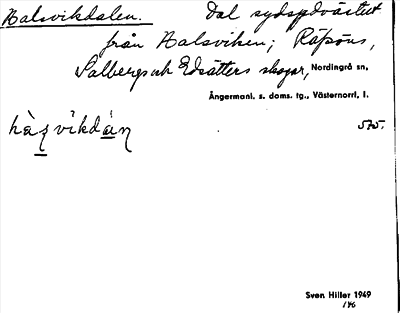 Halsvikdalen. Dal sydsydvästut
från Halsviken; Räpsöns,
Salbergs och Edsätters skogar, Nordingrå sn,
Ångermanl. s. doms. tg., Västernorrl. l.
hàsvìkdán 575.
Sven Hiller 1949
146